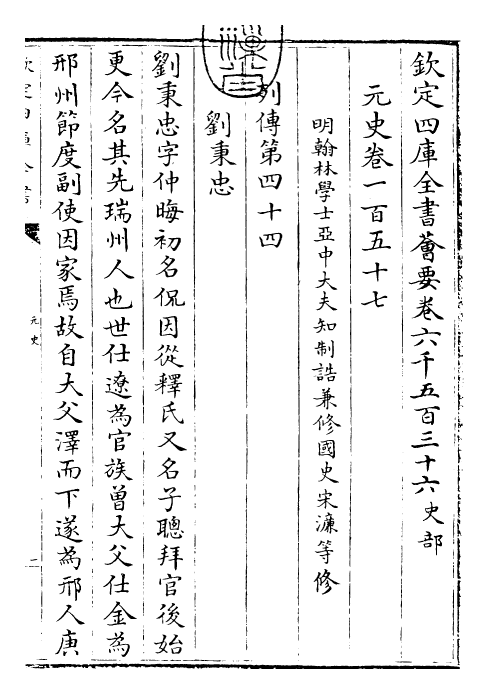 欽定四庫全書薈要卷六千五百三十六史部
元史卷一百五十七
明翰林學士亞中大夫知制誥兼修國史宋濂等修
列傳第四十四
劉秉忠
劉秉忠字仲晦初名侃因從釋氏又名子聰拜官後始
更今名其先瑞州人也世仕遼為官族曽大父仕金為
邢州節度副使因家焉故自大父澤而下遂為邢人庚
元史
二